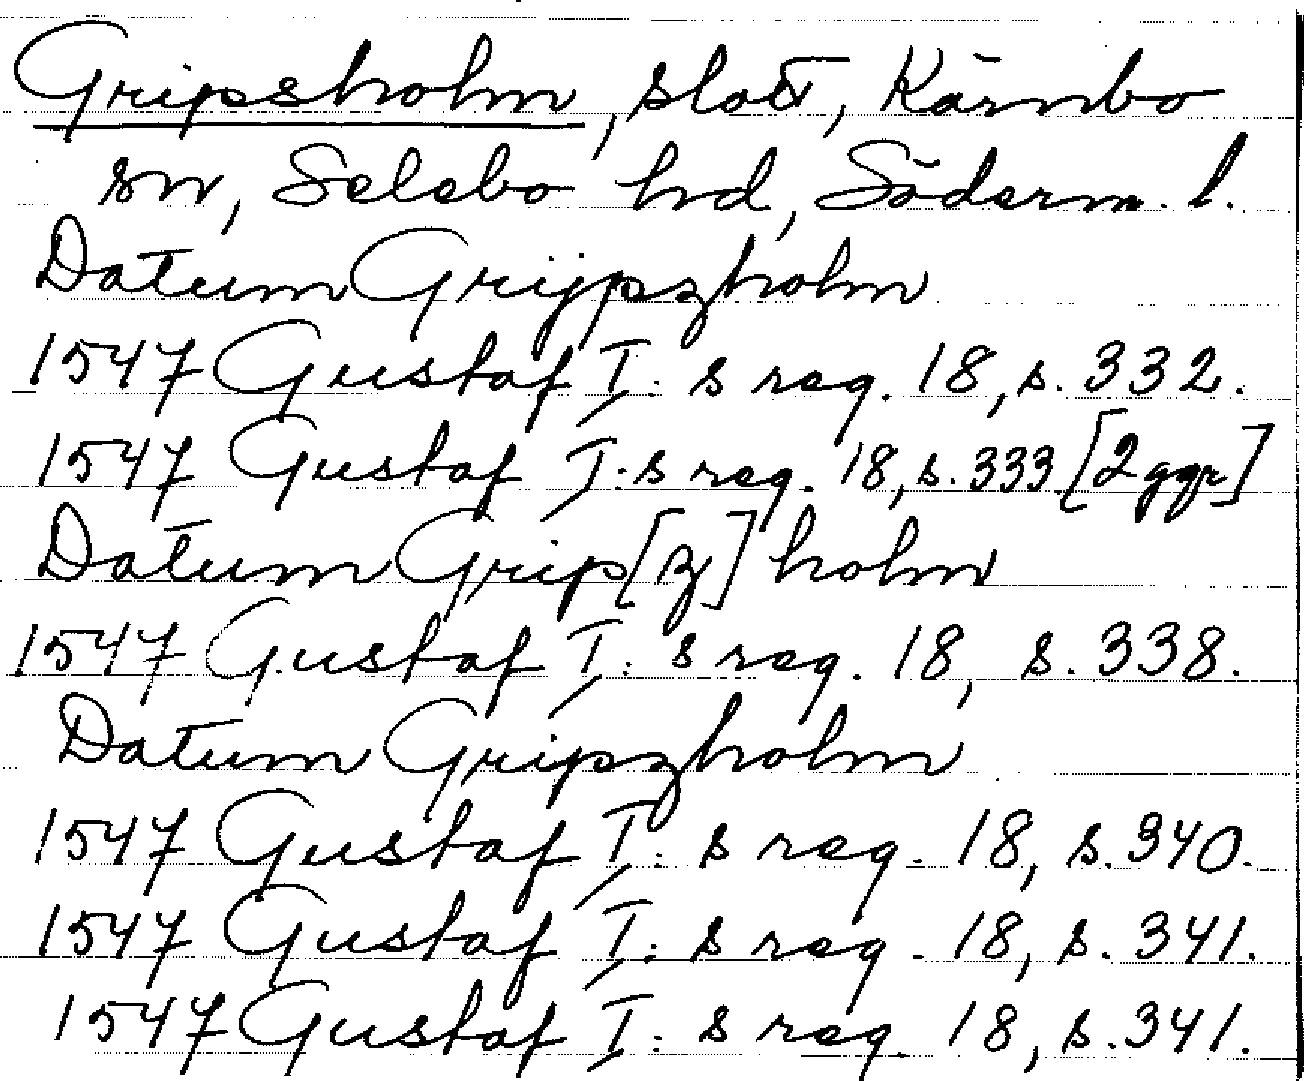 Gripsholm, slott, Kärnbo
sn, Selebo hd, Söderm. l.
Datum Grijpszholm
1547 Gustaf I: s reg. 18, s. 332.
1547 Gustaf I: s reg. 18, s. 333 [2 ggr]
Datum Grip[z]holm
1547 Gustaf I: s reg. 18, s. 338.
Datum Gripszholm
1547 Gustaf I: s reg. 18, s. 340.
1547 Gustaf I: s reg. 18, s. 341.
1547 Gustaf I: s reg. 18, s. 341.